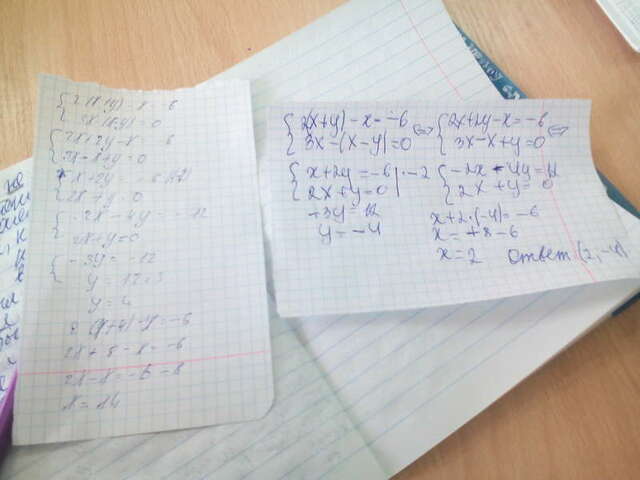 {2(x+y)-x=-6
3x-(x-y)=0
{2x+2y-x=-6
3x-x+y=0
{x+2y=-6
2x+y=0
{-2x-4y=12
2x+y=0
{-3y=-12
y=12:3
y=4
2(x+4)-x=-6
2x+8-x=-6
2x-x=-6-8
x=14
{2(x+y)-x=-6 ⇔ {2x+2y-x=-6 ⇔
3x-(x-y)=0 3x-x+y=0
{x+2y=-6|·-2 {-2x-4y=12
2x+y=0 2x+y=0
+3y=12 x+2·(-4)=-6
y=-4 x=+8-6
x=2 Ответ (2,-4)